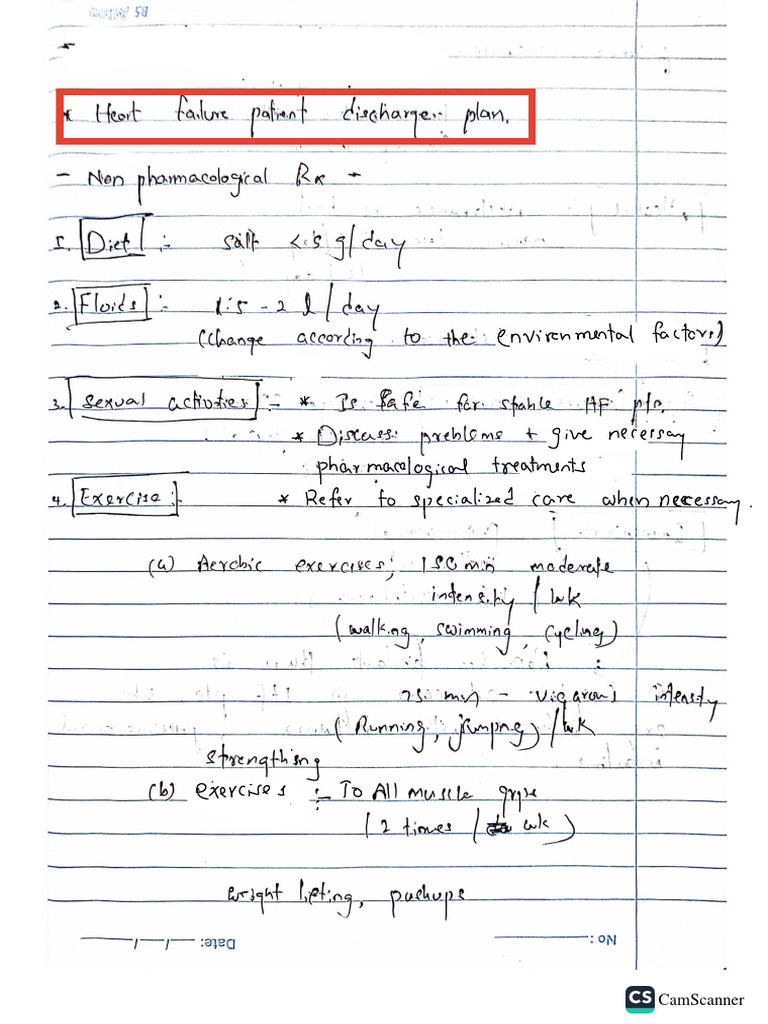 * Heart failure patient discharge plan.
- Non pharmacological Rx -
1. Diet :- salt <.5 g/day
2. Fluids :- 1.5 - 2 l/day
(Change according to the environmental factors)
3. Sexual activities :- * Is safe for stable HF pts.
* Discuss problems + give necessary
pharmacological treatments
* Refer to specialized care when necessary.
4. Exercise :-
(a) Aerobic exercises; 150 min moderate
intensity / wk
(walking, swimming, cycling)
75 min - vigarous intensity
(Running, jumping) / wk
strengthing
(b) exercises :- To All muscle
(2 times / wk)
weight lifting, pushups
No :
Date:
CS CamScanner